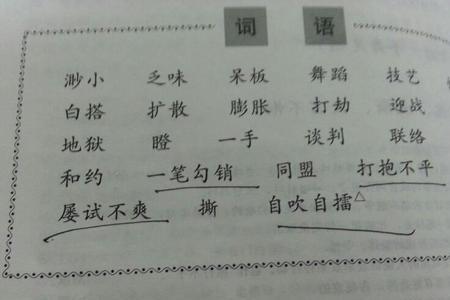 词 语
渺小 乏味 呆板 舞蹈 技艺
白搭 扩散 膨胀 打劫 迎战
地狱 瞪 一手 谈判 联络
和约 一笔勾销 同盟 打抱不平
屡试不爽 撕 自吹自擂△